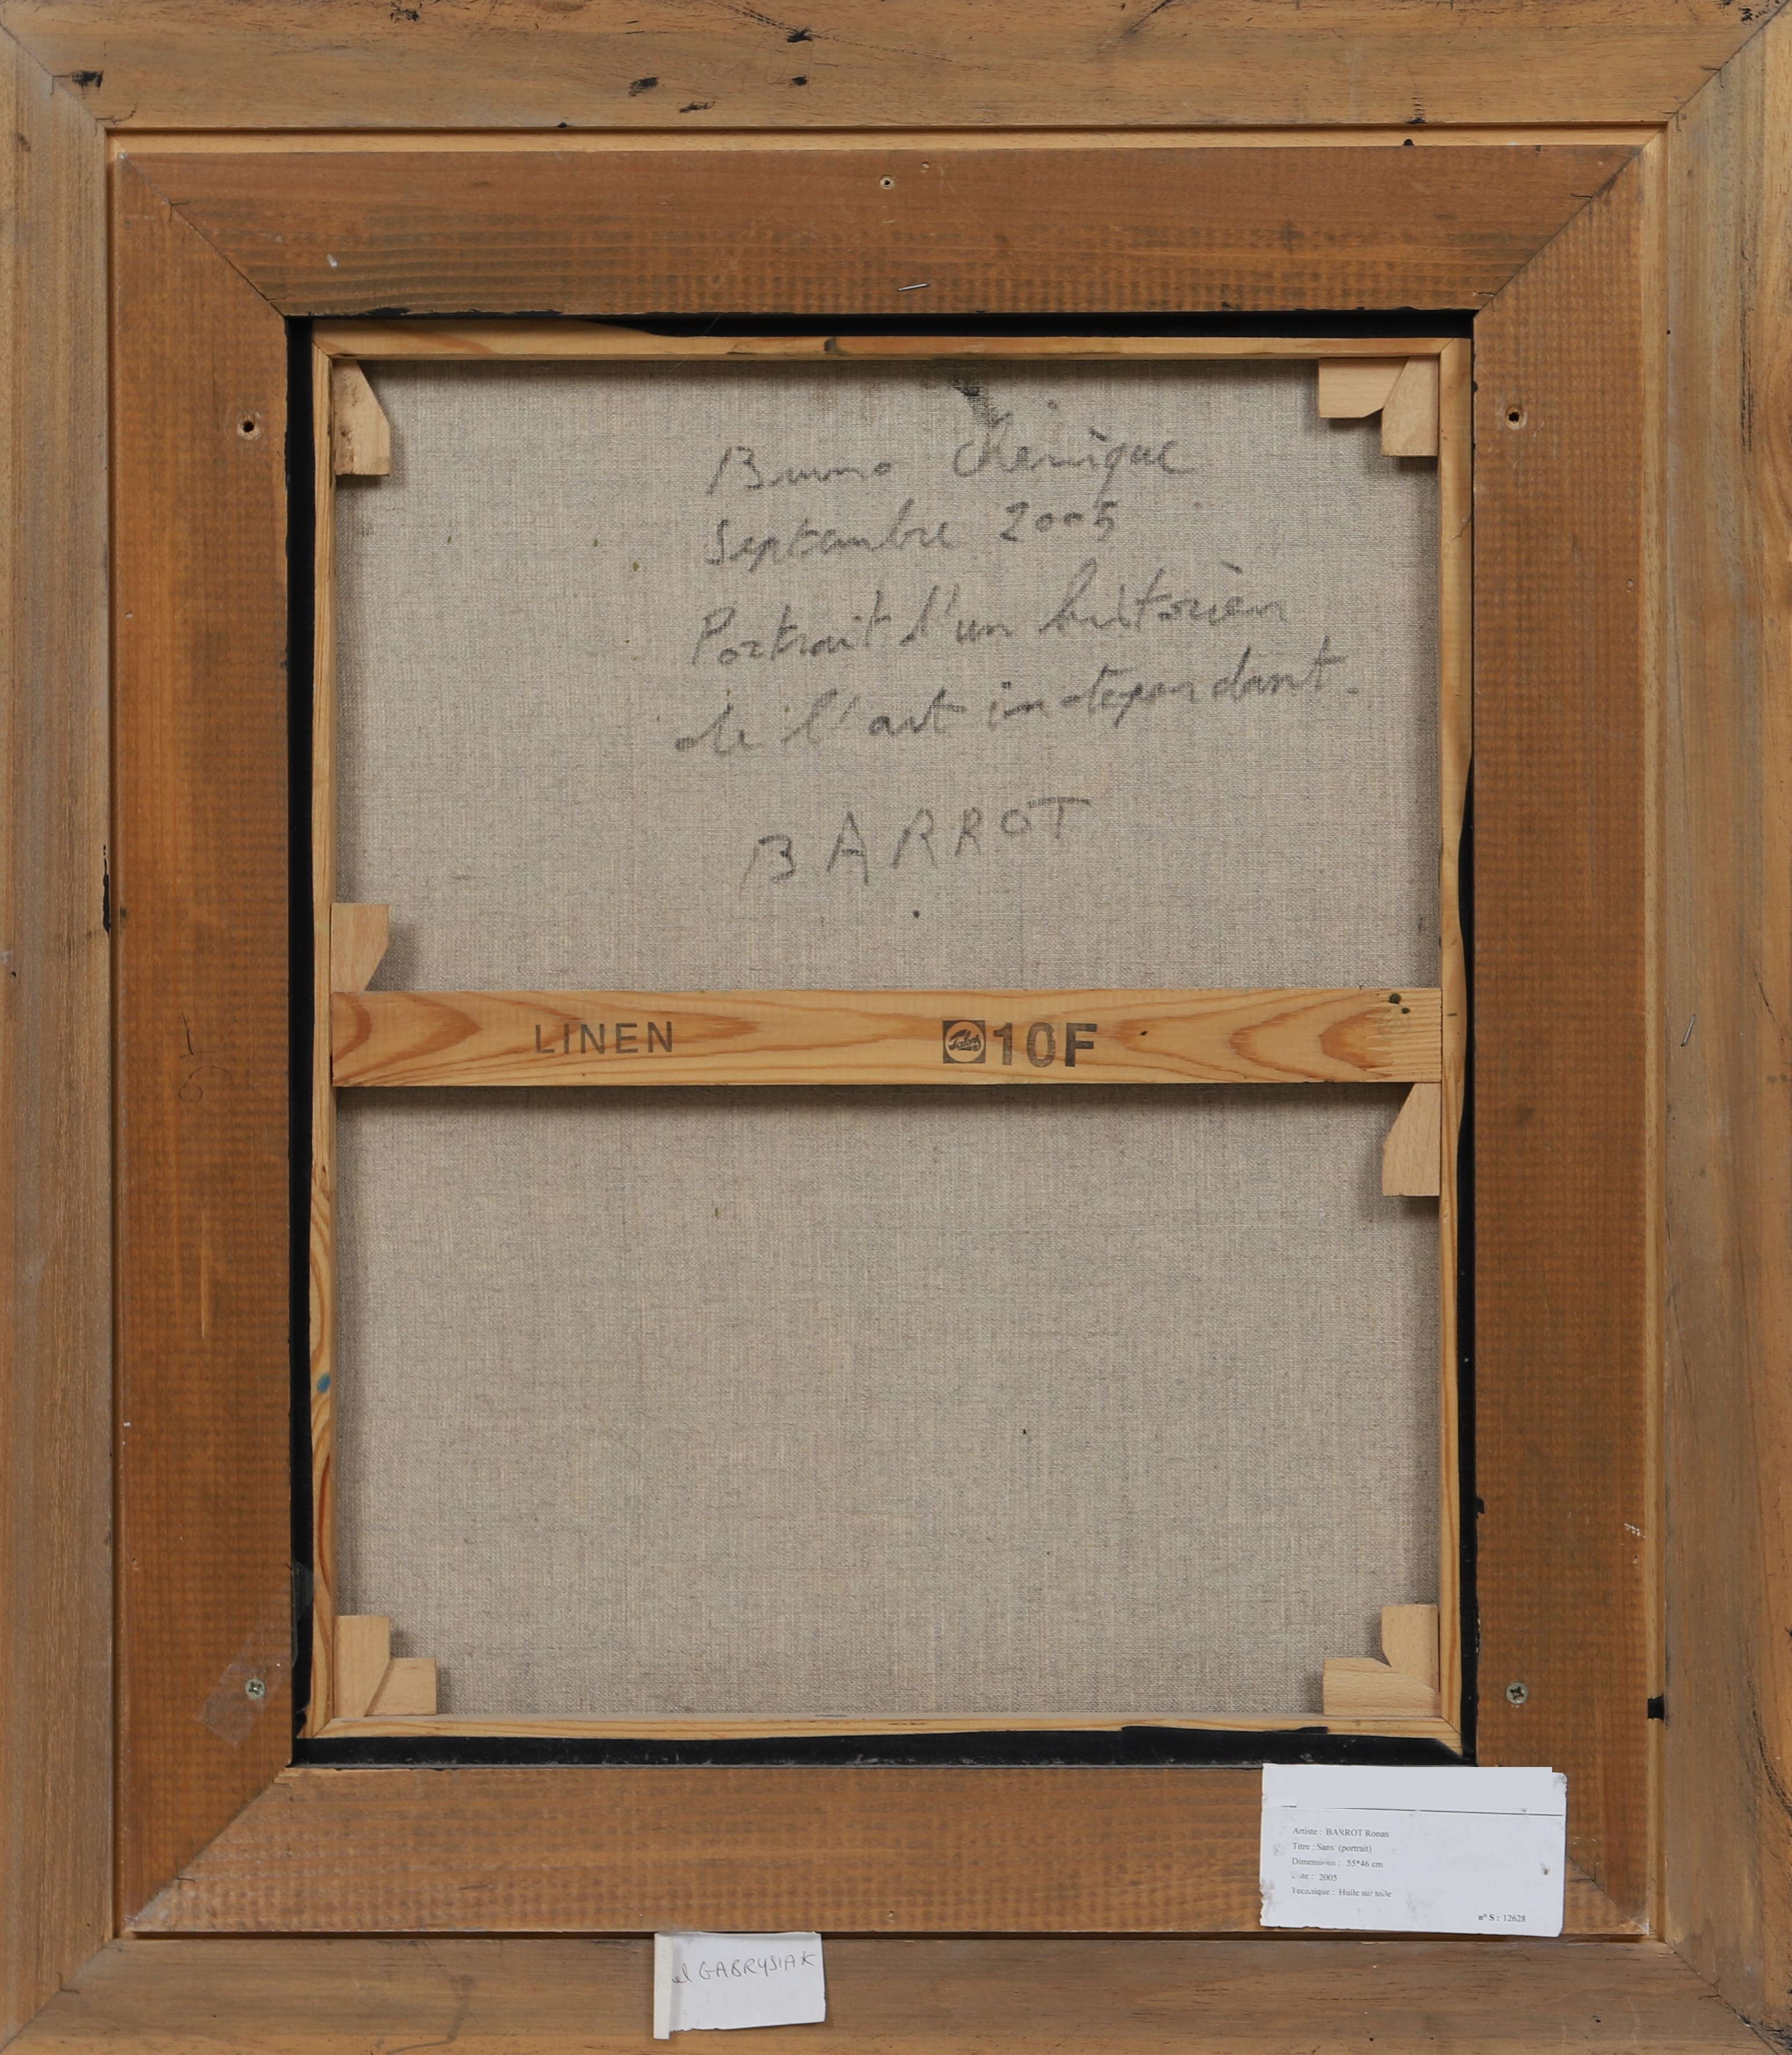 Bruno Chenique
Septembre 2005
Portrait d'un historien
de l'art indépendant.
BARROT
LINEN
Talens 10F
Artiste : BARROT Ronan
Titre : Sans (portrait)
Dimensions : 55*46 cm
Date : 2005
Technique : Huile sur toile
n° S : 12628
GABRYSIAK